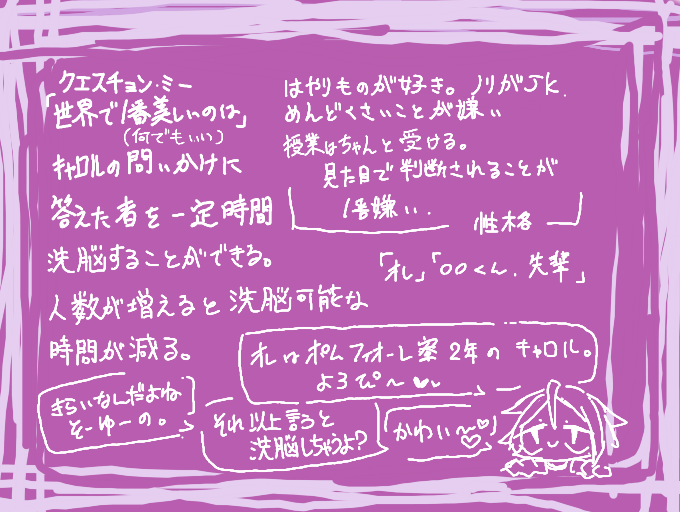 クエスチョン・ミー
「世界で1番美しいのは」
(何でもいい)
キャロルの問いかけに
答えた者を一定時間
洗脳することができる。
人数が増えると洗脳可能な
時間が減る。
はやりものが好き。ノリがJK.
めんどくさいことが嫌い
授業はちゃんと受ける。
見た目で判断されることが
1番嫌い.
性格
「オレ」「○○くん.先輩」
オレはポムフィオーレ寮2年のキャロル。
よろぴ〜♥♥
きらいなんだよね
そーゆーの。
それ以上言うと
洗脳しちゃうよ?
かわい〜♡♡